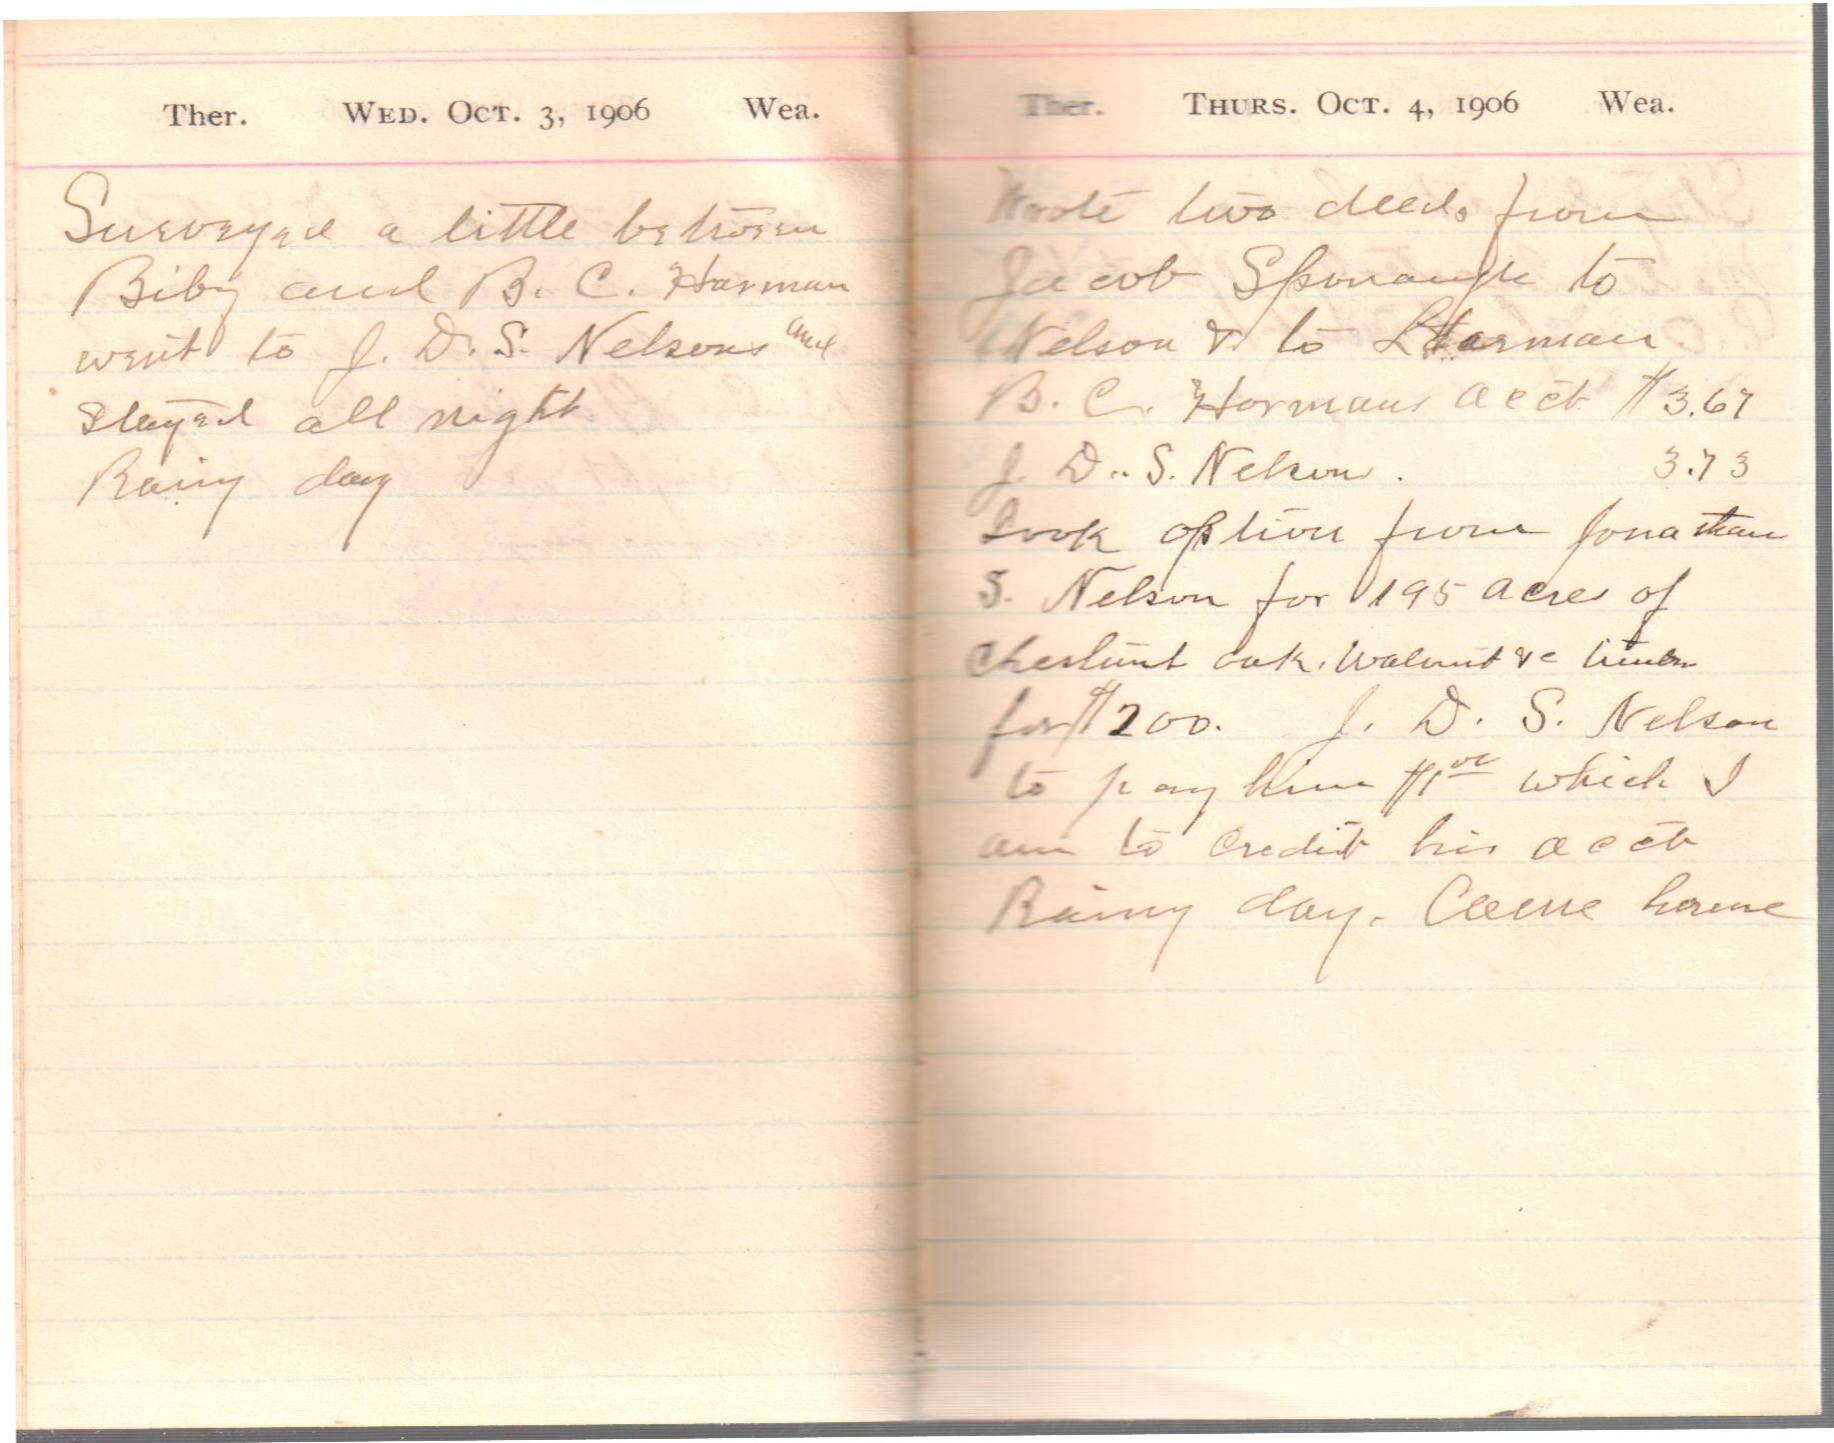 Ther. WED. OCT. 3, 1906 Wea.
Surveyed a little between
Biby and B. C. Harman
went to J. D. S. Nelsons and
Stayed all night
Rainy day
Ther. THURS. OCT. 4, 1906 Wea.
Wrote two deeds from
Jacob Sponaugle to
Nelson & to Harman
B. C. Harmans acct $3.67
J. D. S. Nelson . 3.73
Took option from Jonathan
S. Nelson for 195 acres of
Chestnut oak. Walnut &c timber
for $200. J. D. S. Nelson
to pay him $1oo which I
am to credit his acct
Rainy day. Came home